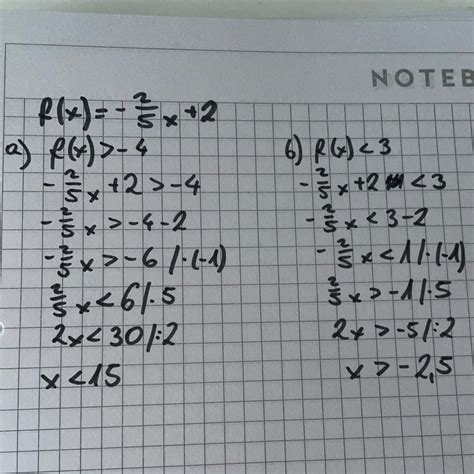 NOTEB
f(x)=-2/5x+2
a) f(x)>-4
-2/5x+2>-4
-2/5x>-4-2
-2/5x>-6/·(-1)
2/5x<6/·5
2x<30/:2
x<15
б) f(x)<3
-2/5x+2<3
-2/5x<3-2
-2/5x<1/·(-1)
2/5x>-1/·5
2x>-5/:2
x>-2,5